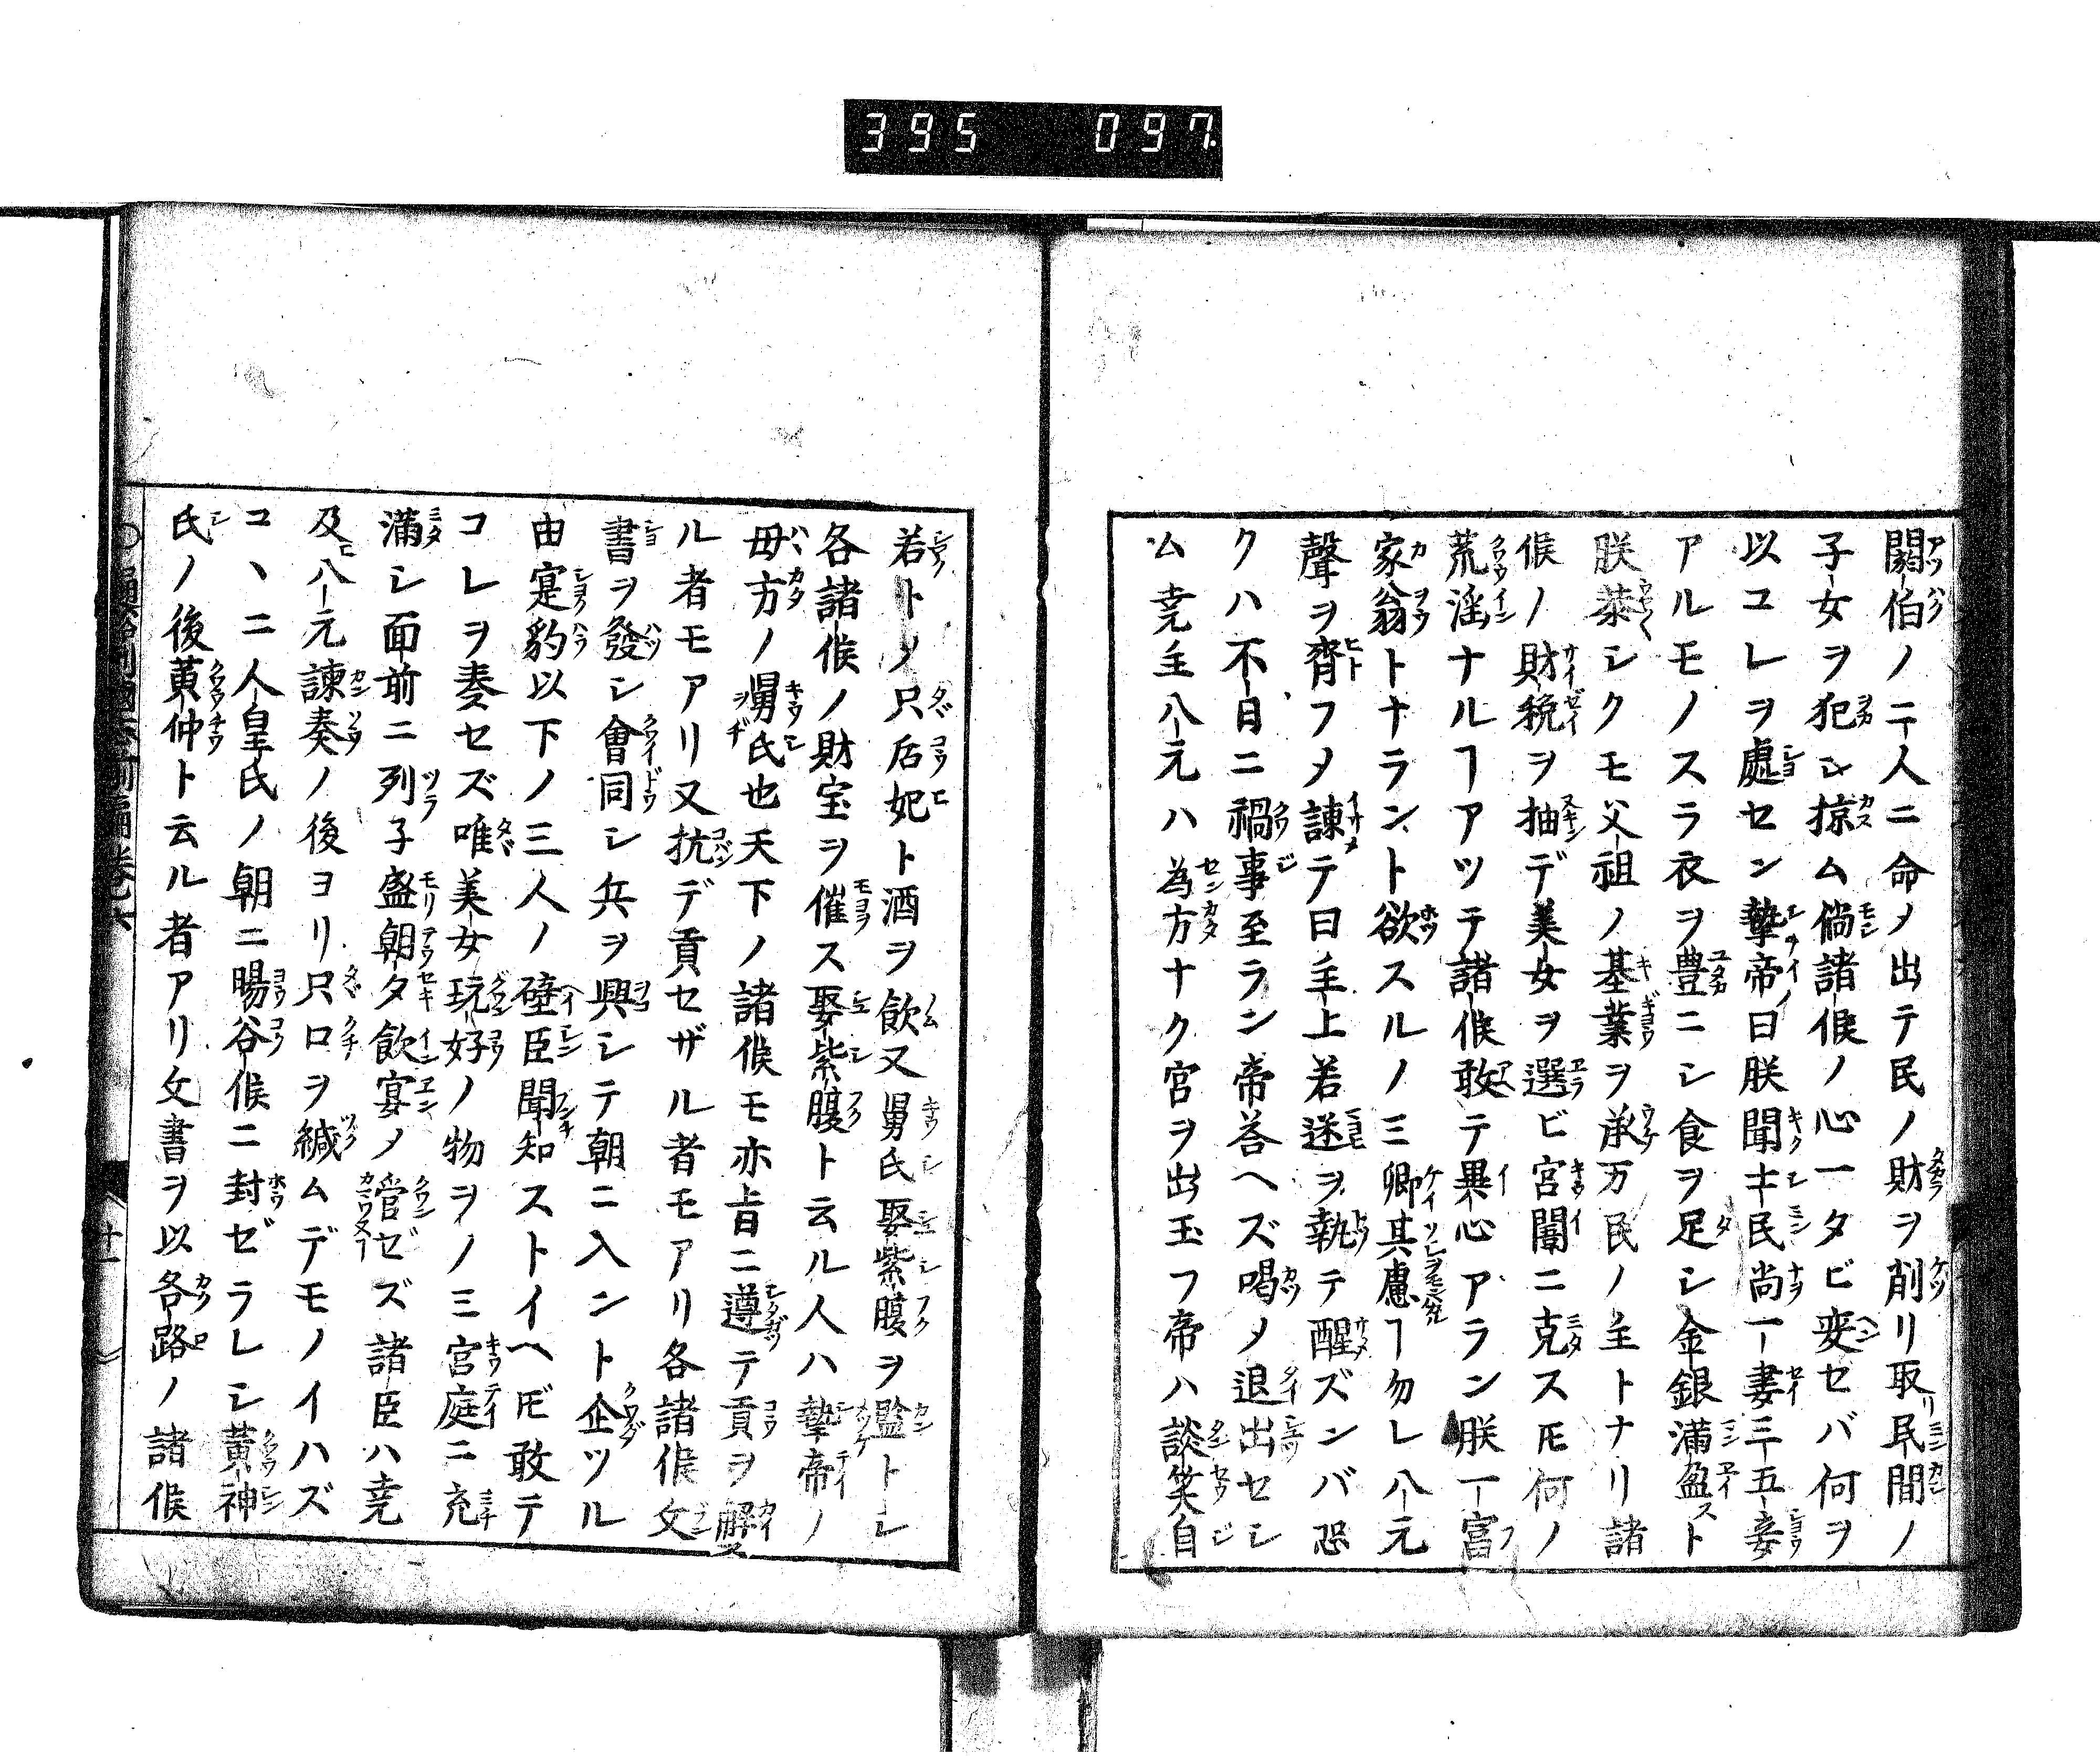 395 097
閼伯ノ二人ニ命メ出テ民ノ財ヲ削リ取民間ノ
子女ヲ犯シ掠ム倘諸侯ノ心一タビ変セバ何ヲ
以コレヲ處セン摯帝曰朕聞キ民尚一妻三五妾
アルモノスラ衣ヲ豊ニシ食ヲ足シ金銀満盈スト
朕恭シクモ父祖ノ基業ヲ承万民ノ主トナリ諸
侯ノ財税ヲ抽デ美女ヲ選ビ宮闈ニ克スℸ何ノ
荒淫ナルヿアツテ諸侯敢テ異心アラン朕一富
家翁トナラント欲スルノミ卿其慮ヿ勿レ八元
聲ヲ齊フメ諌テ曰主上若迷ヲ執テ醒ズンバ恐
クハ不日ニ禍事至ラン帝荅ヘズ喝メ退出セシ
ム尭主八元ハ為方ナク宮ヲ出玉フ帝ハ談笑自
若トメ只后妃ト酒ヲ飲又舅氏娶紫腹ヲ監トレ
各諸侯ノ財宝ヲ催ス娶紫腹ト云ル人ハ摯帝ノ
母方ノ舅氏也天下ノ諸侯モ亦旨ニ遵テ貢ヲ解
ル者モアリ又抗デ貢セザル者モアリ各諸侯文
書ヲ發シ會同シ兵ヲ興シテ朝ニ入ント企ツル
由寔豹以下ノ三人ノ壁臣聞知ストイヘ𪜈敢テ
コレヲ奏セズ唯美女玩好ノ物ヲノミ宮庭ニ充
満シ面前ニ列子盛朝タ飲宴メ管ゼズ諸臣ハ尭
及八元諌奏ノ後ヨリ只口ヲ緘ムデモノイハズ
コヽニ人皇氏ノ朝ニ暘谷侯ニ封ゼラレシ黄神
氏ノ後黄仲ト云ル者アリ文書ヲ以各路ノ諸侯
十一